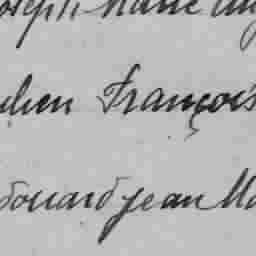 oseph Marie
François
douard jean Ma